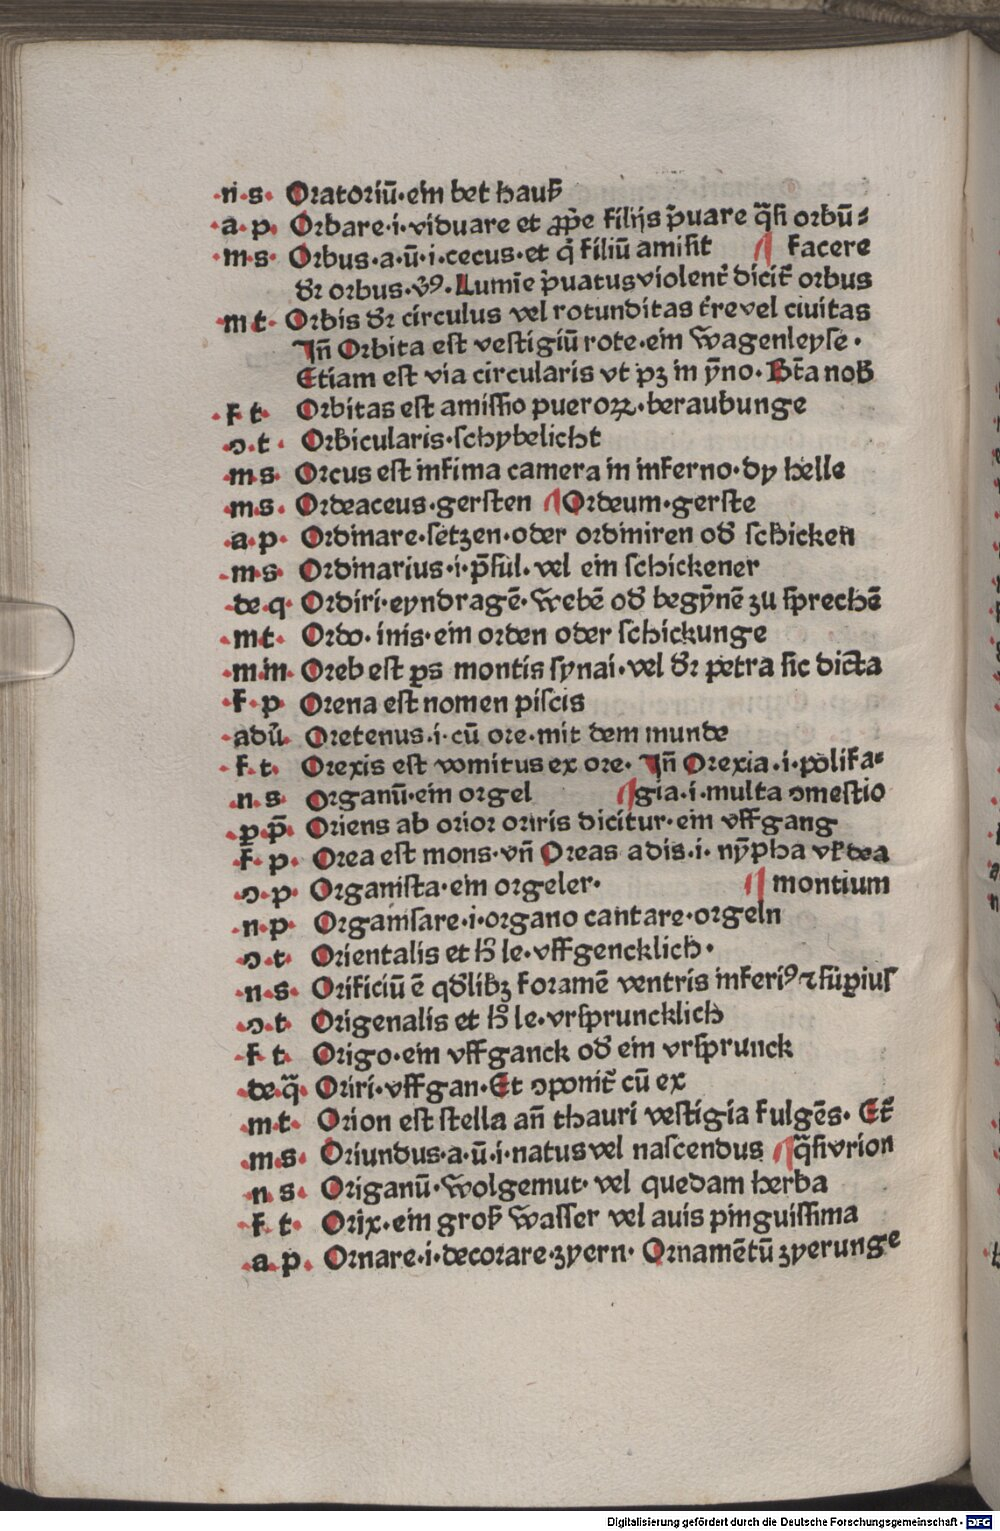 ·n·s· Oratoriū·ein bet hauß
·a·p· Orbare·i·viduare et ꝓp̄e filijs p̄uare q̄si orbū⸗
·m·s· Orbus·a·ū·i·cecus·et q̇ filiū amisit ¶ facere
dr̄ orbus·v̓ꝰ·Lumīe p̄uatus violent̄ dicit̄ orbus
·m t· Orbis dr̄ circulus vel rotunditas t̄re vel ciuitas
Jn̄ Orbita est vestigiū rote·ein wagenleyse·
Etiam est via circularis vt pꝫ in ẏno·Bt̄a nob̄
·f t· Orbitas est amissio pueroꝝ·beraubunge
·ɔ·t· Orbicularis·schybelicht
·m s· Orcus est infima camera in inferno·dy helle
·m s· Ordeaceus·gersten ¶ Ordeum·gerste
·a·p· Ordinare·setzen·oder ordiniren od̄ schicken
·m s· Ordinarius·i·p̄sul·vel ein schickener
·de·q· Ordiri·eyndragē·webē od̄ begẏnē zu sprechē
·m t· Ordo·inis·ein orden oder schickunge
·m·in· Oreb est ꝑs montis synai·vel dr̄ petra sic dicta
·f·p· Orena est nomen piscis
·adū· Oretenus·i·cū ore·mit dem munde
·f·t· Orexis est vomitus ex ore· Jn̄ Orexia·i·polifa⸗
·n s· Organū·ein orgel ¶gia·i·multa ɔmestio
·p̱ p̄· Oriens ab orior oriris dicitur·ein vffgang
·f·p· Orea est mons·vn̄ Oreas adis·i·nẏpha vt̄ dea
·ɔ·p· Organista·ein orgeler· ¶ montium
·n·p· Organisare·i·organo cantare·orgeln
·ɔ·t· Orientalis et h̄ le·vffgencklich·
·n·s· Orificiū ē qd̄libꝫ foramē ventris inferiꝰ ⁊ suꝑius
·ɔ·t· Origenalis et h̄ le·vrspruncklich
·f t· Origo·ein vffganck od̄ ein vrsprunck
·de·q̄· Oriri·vffgan·Et ɔponit̄ cū ex
·m·t· Orion est stella an̄ thauri vestigia fulgēs· Et̄
·m·s· Oriundus·a·ū·i·natus vel nascendus ¶q̄si vrion
·n s· Origanū·wolgemut·vel quedam herba
·f t· Orix·ein groß wasser vel auis pinguissima
·a·p· Ornare·i·decorare·zyern· Ornamētū zyerunge
Digitalisierung gefördert durch die Deutsche Forschungsgemeinschaft - DFG